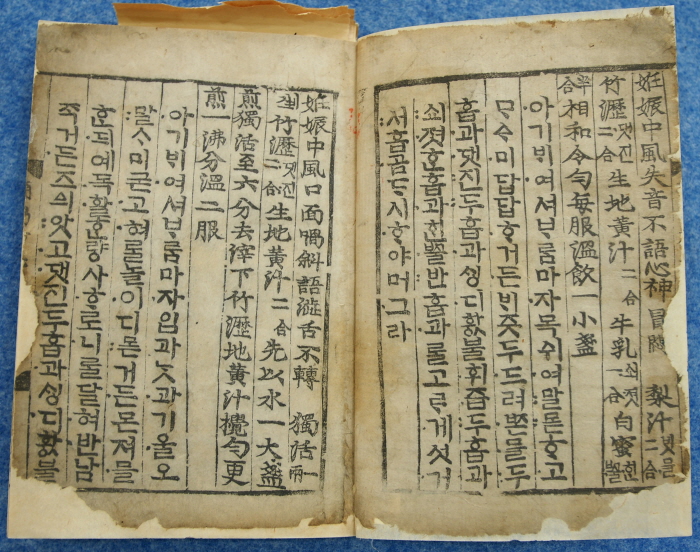 妊娠中風失音不語心神冒悶 梨汁二合
竹瀝댓진二合生地黃汁二合牛乳쇠졋一合白蜜
半合相和令勻每服溫飮一小盞
아기ᄇᆡ여셔ᄇᆞᄅᆞᆷ마자목쉬여말몯ᄒᆞ고
ᄆᆞᅀᆞ미답답ᄒᆞ거든ᄇᆡ즛두드려ᄧᆞᆫ믈두
홉과댓진두홉과ᄉᆡᆼ디황불휘즙두홉과
쇠졋ᄒᆞᆫ홉과ᄒᆡᆫᄢᅮᆯ반홉과ᄅᆞᆯ고ᄅᆞ게섯거
서홉곰ᄃᆞ시ᄒᆞ야머그라
妊娠中風口面喎斜語澁舌不轉 獨活一兩
竹瀝댓진二合生地黃汁二合先以水一大盞
煎獨活至六分去滓下竹瀝地黃汁攪勻更
煎一沸分溫二服
아기ᄇᆡ여셔ᄇᆞᄅᆞᆷ마자입과ᄂᆞᆺ과기울오
말ᄉᆞ미굳고혀를놀이디몯거든몬져믈
ᄒᆞᆫ되예독활ᄒᆞᆫ량사ᄒᆞ로니ᄅᆞᆯ달혀반남
죽거든즈ᅴ앗고댓진두홉과ᄉᆡᆼ디황불